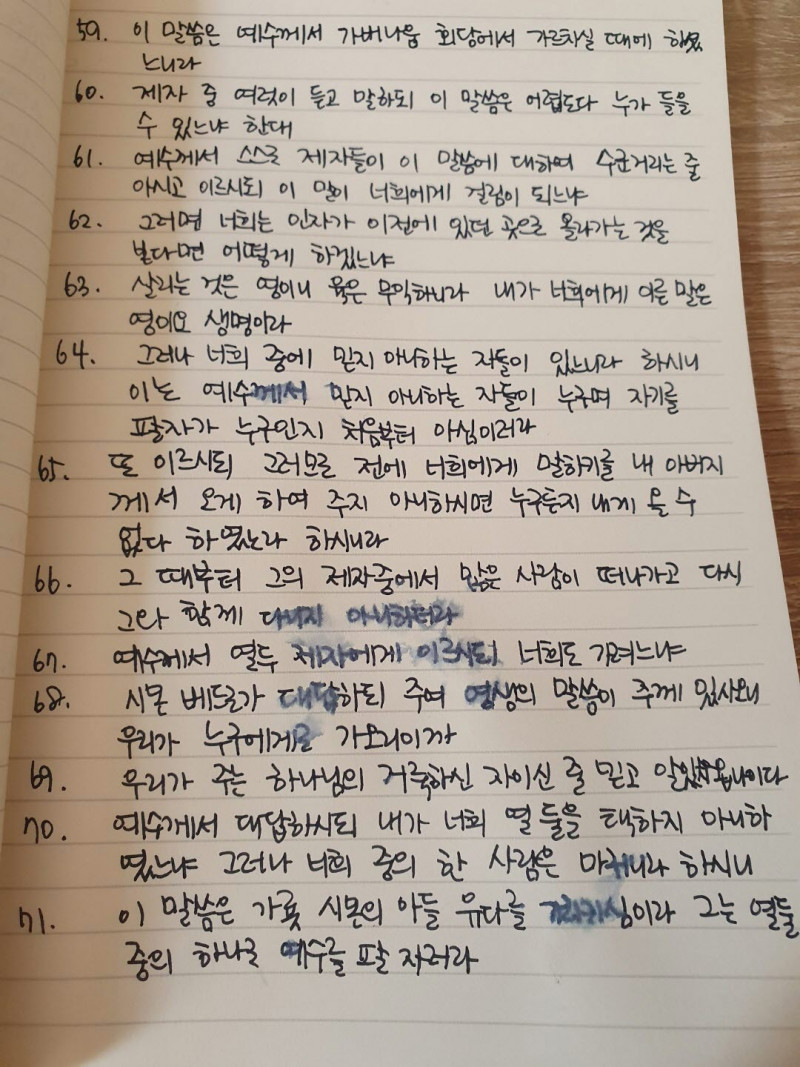 59. 이 말씀은 예수께서 가버나움 회당에서 가르치실 때에 하셨
느니라
60. 제자 중 여럿이 듣고 말하되 이 말씀은 어렵도다 누가 들을
수 있느냐 한대
61. 예수께서 스스로 제자들이 이 말씀에 대하여 수군거리는 줄
아시고 이르시되 이 말이 너희에게 걸림이 되느냐
62. 그러면 너희는 인자가 이전에 있던 곳으로 올라가는 것을
본다면 어떻게 하겠느냐
63. 살리는 것은 영이니 육은 무익하니라 내가 너희에게 이른 말은
영이오 생명이라
64. 그러나 너희 중에 믿지 아니하는 자들이 있느니라 하시니
이는 예수께서 믿지 아니하는 자들이 누구며 자기를
팔자가 누구인지 처음부터 아심이러라
65. 또 이르시되 그러므로 전에 너희에게 말하기를 내 아버지
께서 오게 하여 주지 아니하시면 누구든지 내게 올 수
없다 하였노라 하시니라
66. 그 때부터 그의 제자중에서 많은 사람이 떠나가고 다시
그와 함께 다니지 아니하더라
67. 예수께서 열두 제자에게 이르시되 너희도 가려느냐
68. 시몬 베드로가 대답하되 주여 영생의 말씀이 주께 있사오니
우리가 누구에게로 가오리이까
69. 우리가 주는 하나님의 거룩하신 자이신 줄 믿고 알았사옵나이다
70. 예수께서 대답하시되 내가 너희 열 둘을 택하지 아니하
였느냐 그러나 너희 중의 한 사람은 마귀니라 하시니
71. 이 말씀은 가룟 시몬의 아들 유다를 가리키심이라 그는 열둘
중의 하나로 예수를 팔 자러라